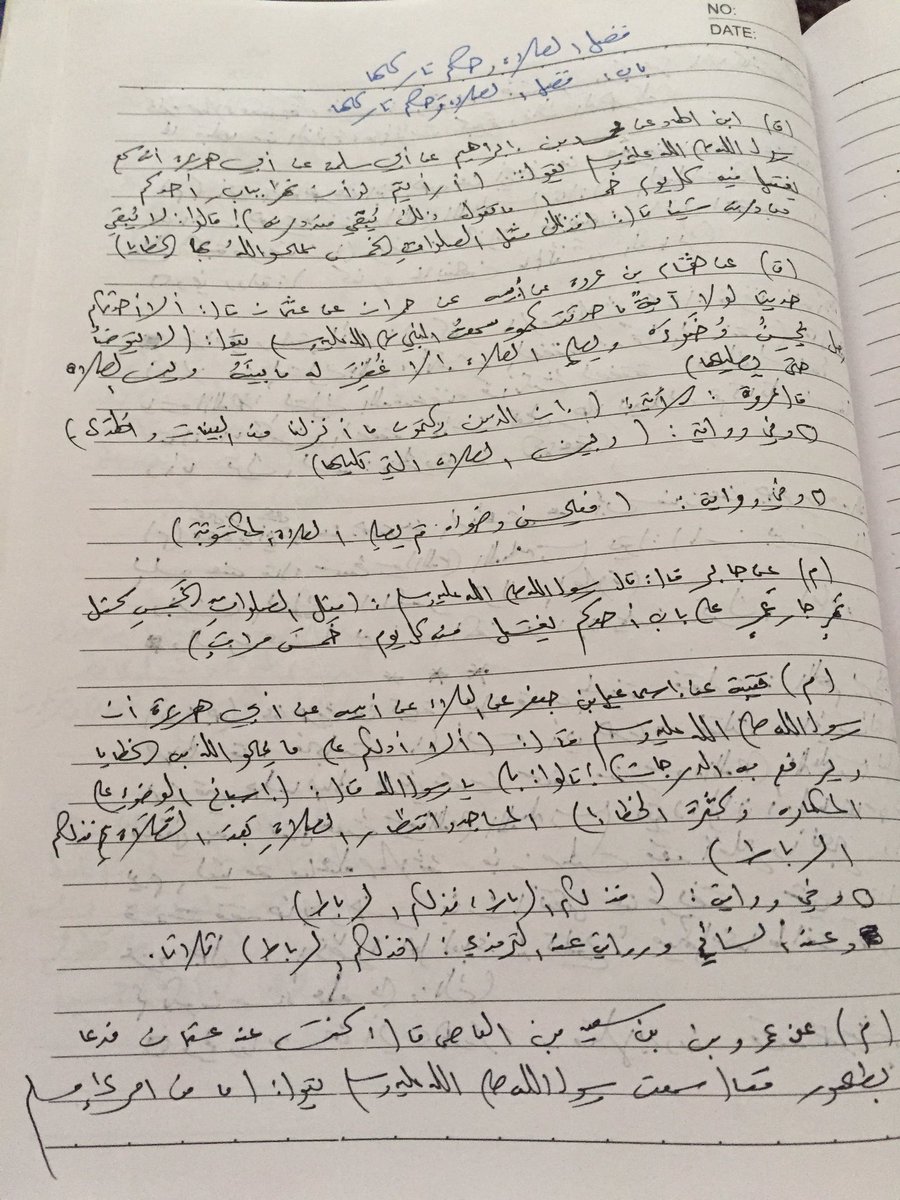 NO:
DATE:
فضل الصلاة وحكم تاركها
باب: فضل الصلاة وحكم تاركها
(ق) ابن الهاد عن محمد بن إبراهيم عن أبي سلمة عن أبي هريرة أنه سمع
رسول الله صلى الله عليه وسلم يقول: (أرأيتم لو أن نهرا بباب أحدكم
يغتسل فيه كل يوم خمسا ما تقول ذلك يُبقي من درنه)؟ قالوا: لا يُبقي
من درنه شيئا قال: (فذلك مثل الصلوات الخمس يمحو الله بها الخطايا)
(ق) عن هشام بن عروة عن أبيه عن حمران عن عثمان قال: ألا أحدثكم
حديثا لولا آيةٌ ما حدثتكموه سمعتُ النبي صلى الله عليه وسلم يقول: (لا يتوضأ
رجل يُحسِنُ وُضوءَه ويصلي الصلاة إلا غُفِرَ له ما بينَهُ وبين الصلاة
حتى يصليها)
قال عروة: الآية: (إن الذين يكتمون ما أنزلنا من البينات والهدى)
o وفي رواية: (وبين الصلاة التي تليها)
o وفي رواية: (فيحسن وضوءه ثم يصلي الصلاة المكتوبة)
(م) عن جابر قال: قال رسول الله صلى الله عليه وسلم: (مثل الصلواتِ الخَمسِ كمثل
نهرٍ جارٍ غمرٍ على باب أحدكم يغتسل منه كل يوم خَمسَ مراتٍ)
(م) قتيبة عن إسماعيل بن جعفر عن العلاء عن أبيه عن أبي هريرة أن
رسول الله صلى الله عليه وسلم قال: (ألا أدلكم على ما يمحو الله به الخطايا
ويرفع به الدرجات)؟ قالوا: بلى يا رسول الله قال: (إسباغ الوضوء على
المكاره وكثرة الخطا إلى المساجد وانتظار الصلاةِ بَعدَ الصَّلاةِ فذلكم
الرباط)
o وفي رواية: (فذلكم الرباط، فذلكم الرباط)
وعند النسائي ورواية عند الترمذي: (فذلكم الرباط) ثلاثا.
(م) عن عمرو بن سعيد بن العاص قال: كنت عند عثمان فدعا
بطهور فقال سمعت رسول الله صلى الله عليه وسلم يقول: (ما من امرئ مسلم